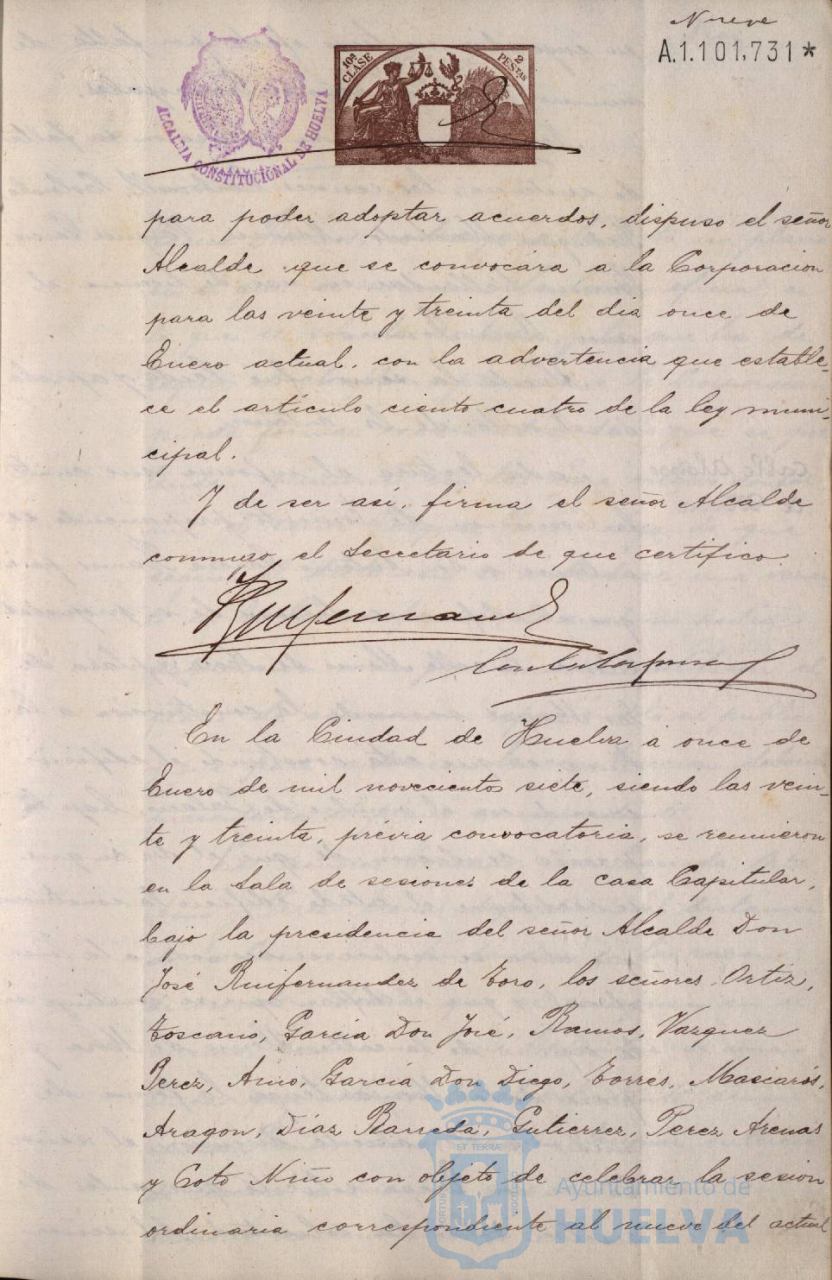 Nueve
A.1.101,731*
10ª CLASE
2 PESTAS
ALCALDIA CONSTITUCIONAL DE HUELVA
para poder adoptar acuerdos, dispuso el señor
Alcalde que se convocára a la Corporacion
para las veinte y treinta del dia once de
Enero actual, con la advertencia que estable-
ce el artículo ciento cuatro de la ley muni-
cipal.
Y de ser así, firma el señor Alcalde
conmigo, el Secretario de que certifico.
Ruifernandez
En la Ciudad de Huelva a once de
Enero de mil novecientos siete, siendo las vein-
te y treinta, prévia convocatoria, se reunieron
en la Sala de sesiones de la casa Capitular,
bajo la presidencia del señor Alcalde Don
José Ruifernandez de Toro, los señores Ortiz,
Toscano, García Don José, Ramos, Vazquez
Perez, Amo, García Don Diego, Torres, Mascarós,
Aragon, Díaz Barreda, Gutierrez, Perez Arenas
y Coto Niño con objeto de celebrar la sesion
ordinaria correspondiente al nueve del actual
Ayuntamiento de
HUELVA